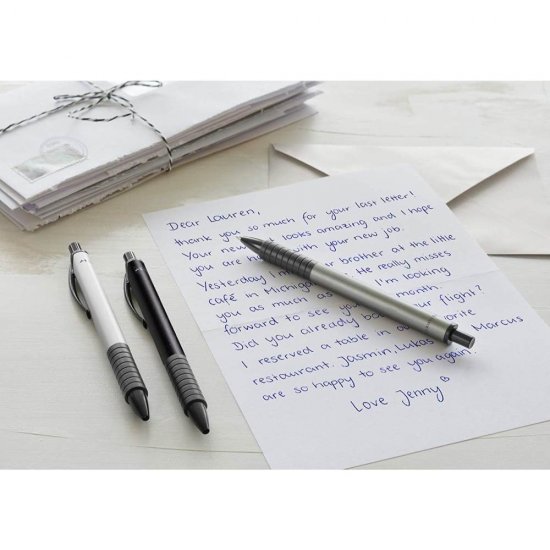 Dear Lauren,
thank you so much for your last letter!
Your new looks amazing and I hope
you are with your new job.
Yesterday I brother at the little
café in Michig He really misses
you as much as I'm looking
forward to see yo month.
Did you already bo ur flight?
I reserved a table in ou
restaurant. Jasmin, Lukas Marcus
are so happy to see you again!
Love Jenny